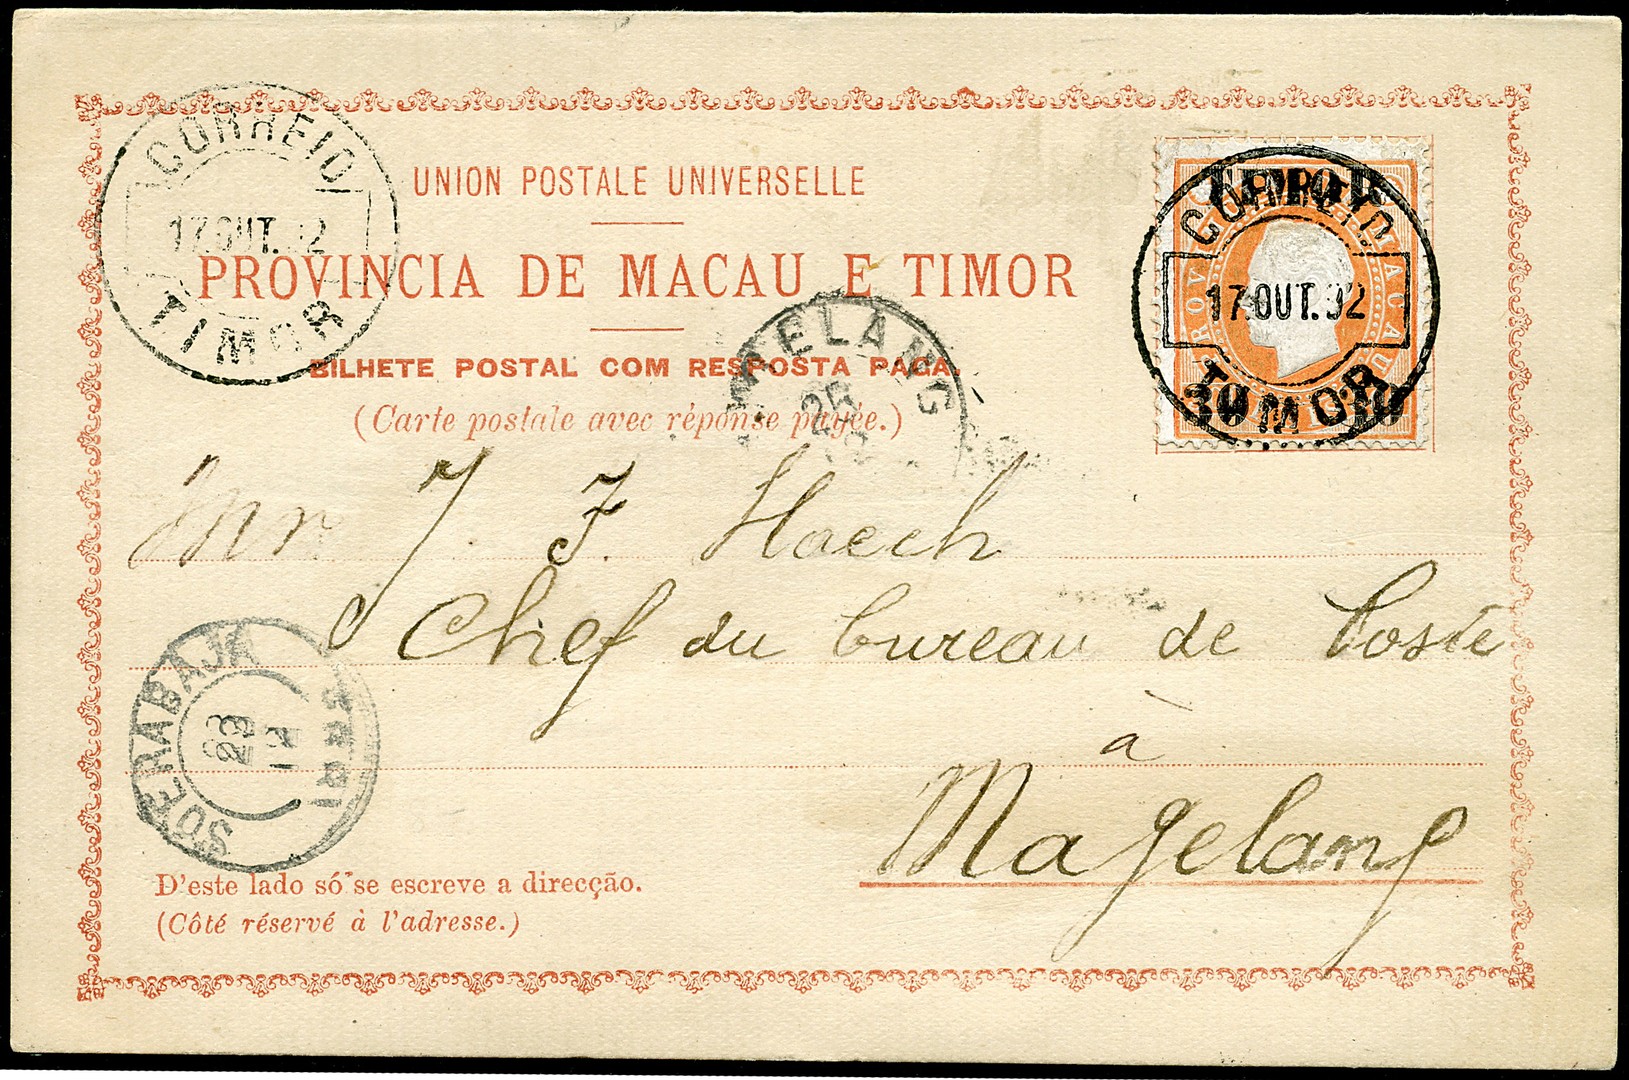 CORREIO
17.OUT.92
TIMOR
UNION POSTALE UNIVERSELLE
PROVINCIA DE MACAU E TIMOR
BILHETE POSTAL COM RESPOSTA PAGA.
(Carte postale avec réponse payée.)
CORREIO
17.OUT.92
TIMOR
30 30
PROVINCIA MACAU
MAGELANG
25
J. F. Hoech
Chef du bureau de Poste
à
Magelang
SOERABAJA
23
D'este lado só se escreve a direcção.
(Côté réservé à l'adresse.)